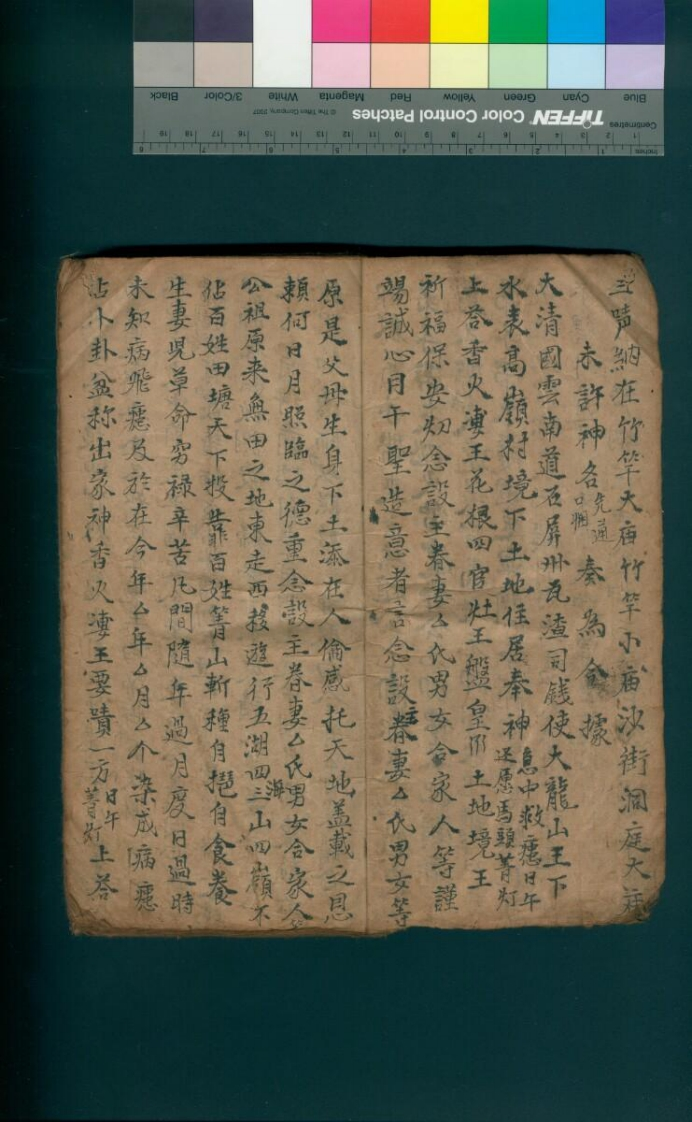 三声納在竹竿大庙竹竿小庙沙街洞庭大庙
未許神名先通口棡奏為合據
大清國雲南道石屏州瓦渣司錢使大龍山王下
水表高嶺村境下土地住居奉神急中救瘜日午还愿馬頭菁灯
上荅香火凄王花根四官灶王盤皇川土地境王
祈福保安灯念設主眷妻厶氏男女合家人等謹
竭誠心月午聖造意者言念設主眷妻厶氏男女等
原是父母生身下土添在人倫感托天地盖載之恩
頼何日月照臨之德重念設主眷妻厶氏男女合家人等
公祖原来無田之地東走西移遊行五湖四海三山四嶺不
佔百姓田塘天下投靠百姓箐山斬種自挺自食養
生妻児草命穷禄辛苦凡間隨年過月度日過時
未知病飛瘜及於在今年厶年厶月厶个染成病瘜
占卜卦盆称出家神香火凄王要蹟一方日午菁灯上荅
Inches
Centimetres
TIFFEN Color Control Patches
© The Tiffen Company, 2007
Blue Cyan Green Yellow Red Magenta White 3/Color Black